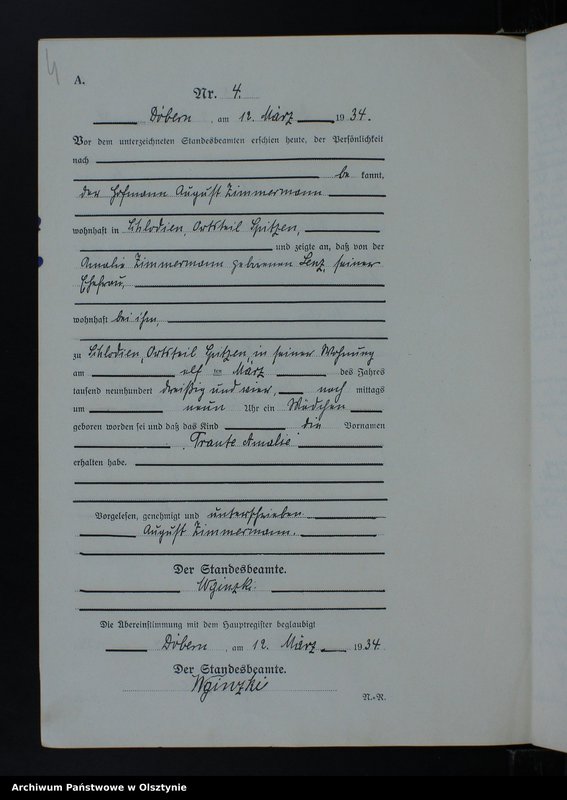 4
A.
Nr. 4.
Döbern, am 12. März 1934.
Vor dem unterzeichneten Standesbeamten erschien heute, der Persönlichkeit
nach
be kannt,
der Hofmann August Zimmermann
wohnhaft in Schlodien, Ortsteil Spitzen,
und zeigte an, daß von der
Amalie Zimmermann geborenen Lenz, seiner
Ehefrau,
wohnhaft bei ihm,
zu Schlodien, Ortsteil Spitzen, in seiner Wohnung
am elf ten März des Jahres
tausend neunhundert dreißig und vier, nach mittags
um neun Uhr ein Mädchen
geboren worden sei und daß das Kind die Vornamen
Traute Amalie
erhalten habe.
Vorgelesen, genehmigt und unterschrieben
August Zimmermann.
Der Standesbeamte.
Die Übereinstimmung mit dem Hauptregister beglaubigt
Döbern, am 12. März 1934
Der Standesbeamte.
N.-R.
Archiwum Państwowe w Olsztynie